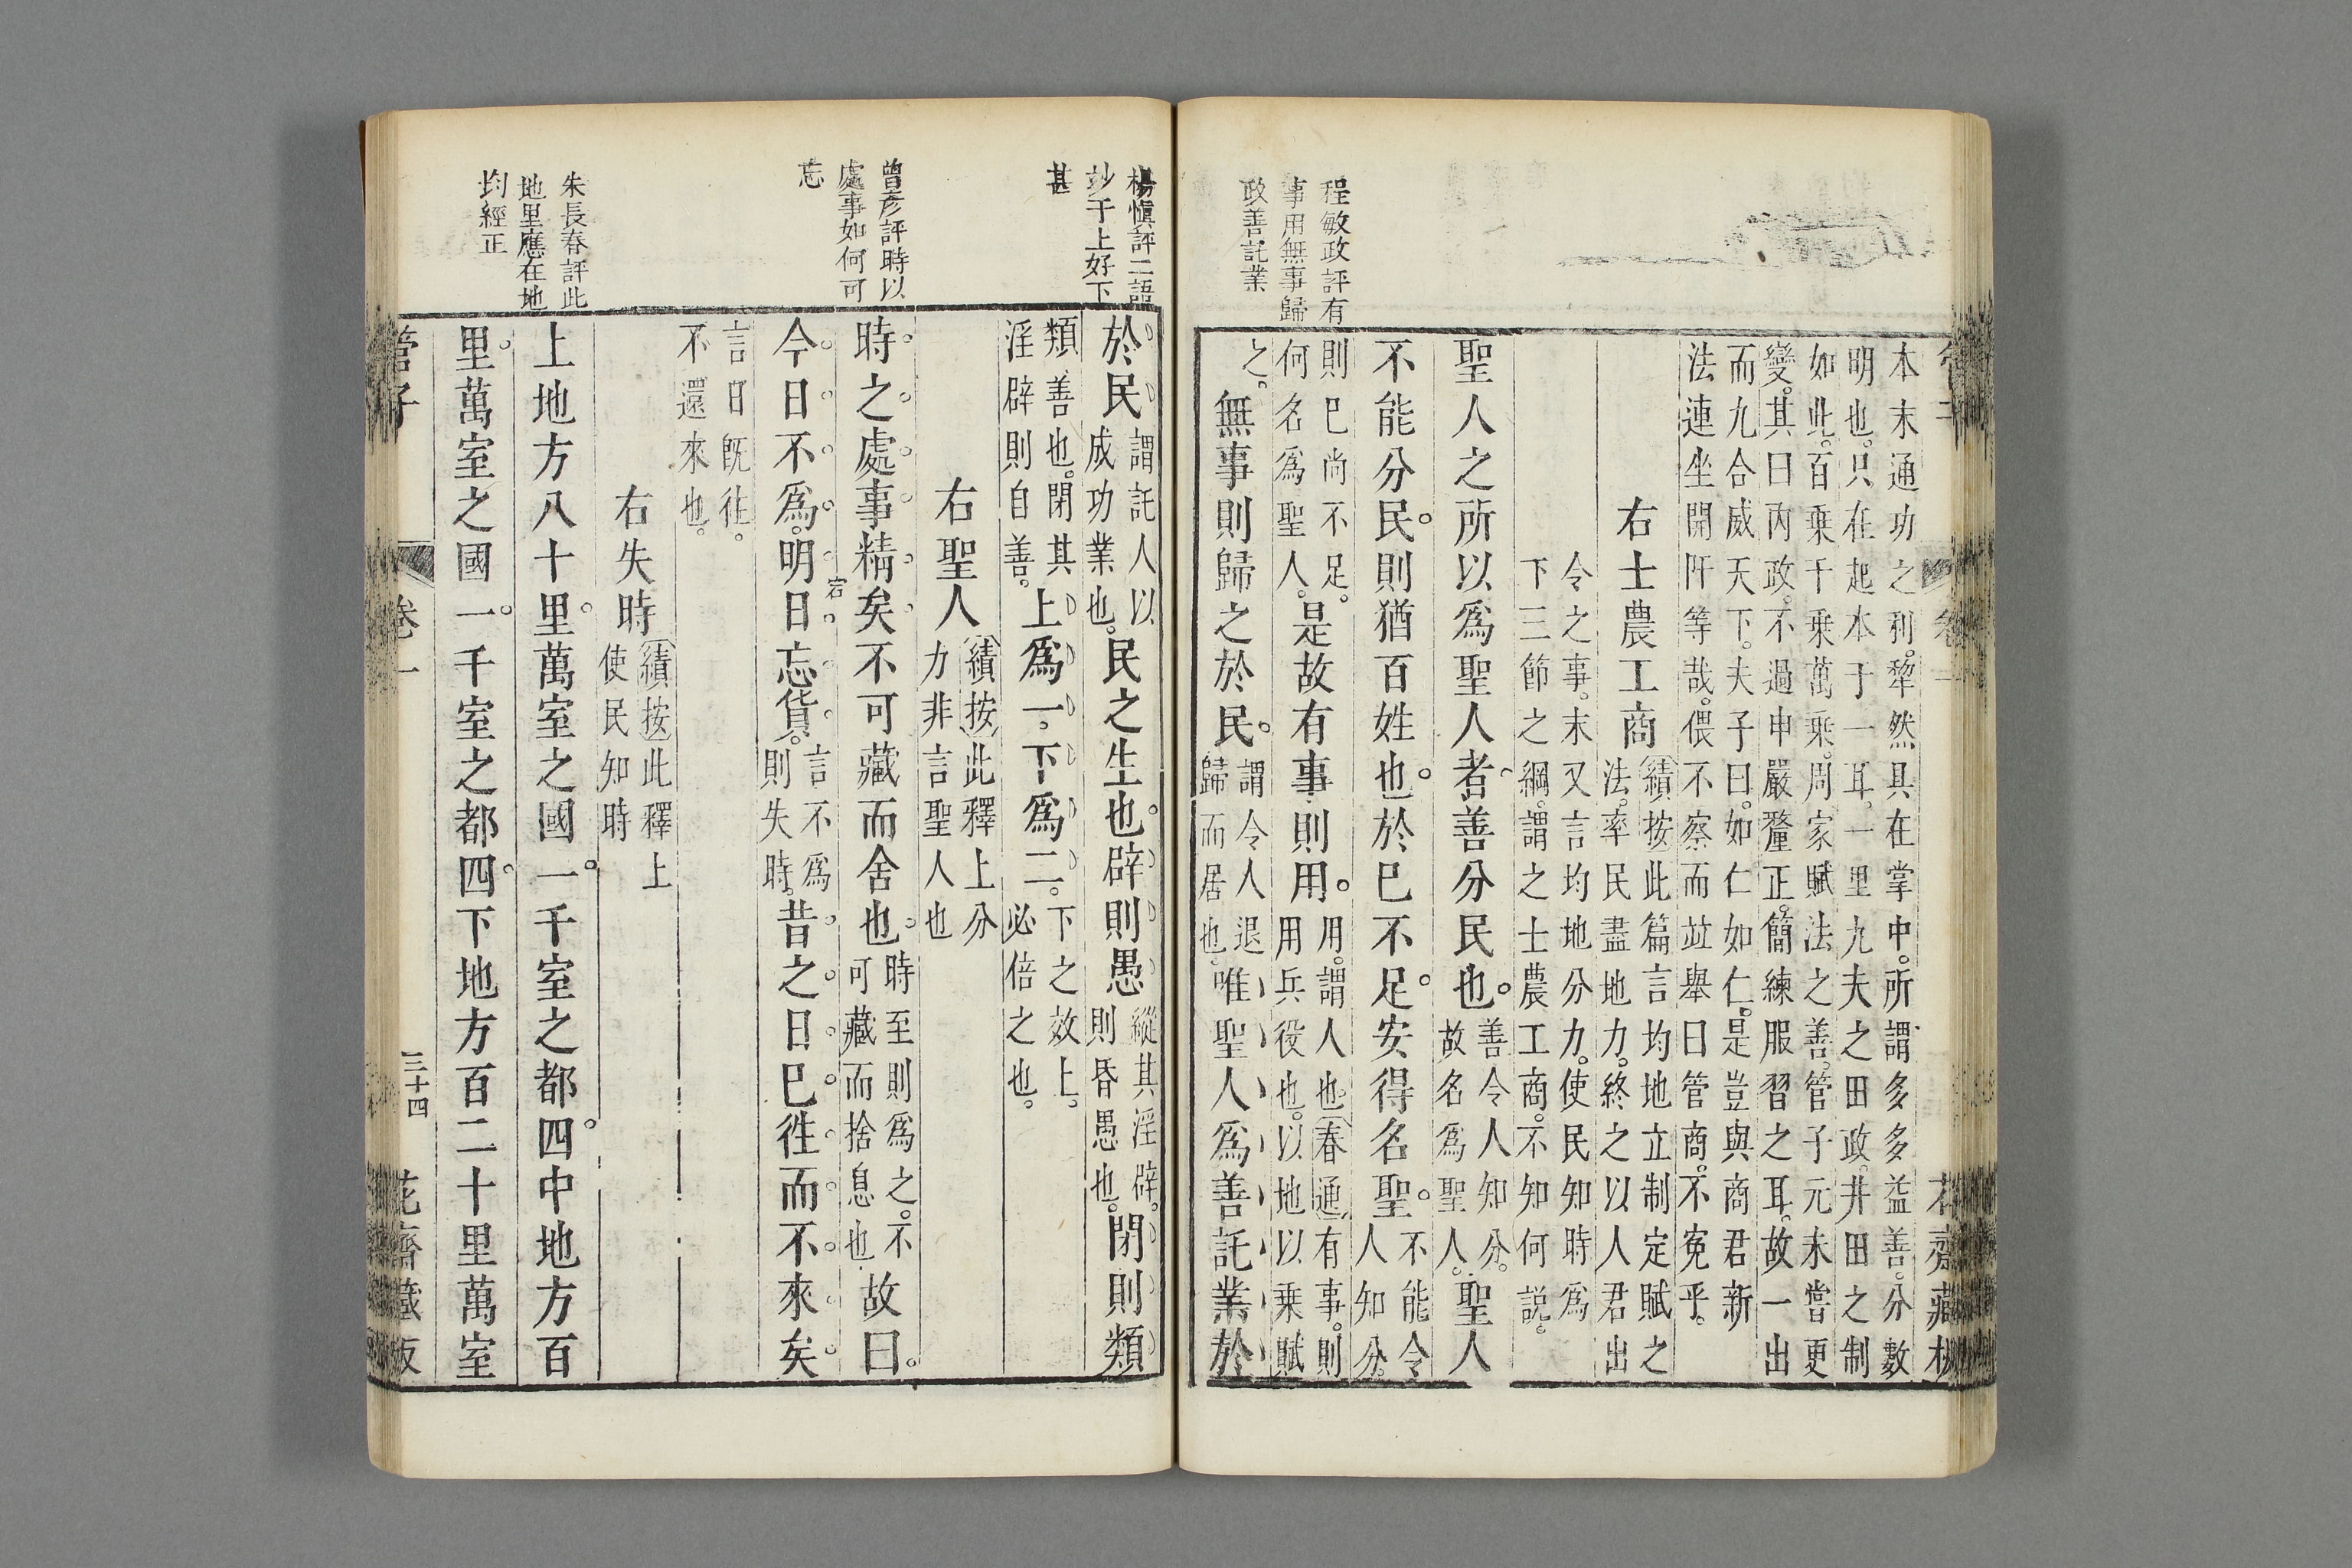 程敏政評有
事用無事歸
政善託業
本末通功之利。犂然具在掌中。所謂多多益善。分數
明也。只在起本于一耳。一里九夫之田政。井田之制
如此。百乗千乗萬乗。周家賦法之善。管子元未嘗更
變。其曰丙政。不過申嚴釐正。簡練服習之耳。故一出
而九合威天下。夫子曰。如仁如仁。是豈與商君新
法連坐開阡等哉。偎不察而竝舉曰管商。不寃乎。
右士農工商
績按此篇言均地立制定賦之
法。率民盡地力。終之以人君出
令之事。末又言均地分力。使民知時爲
下三節之綱。謂之士農工商。不知何説。
聖人之所以爲聖人者善分民也。
善令人知分。
故名爲聖人。
聖人
不能分民。則猶百姓也。於巳不足。安得名聖。
不能令
人知分。
則巳尚不足。
何名爲聖人。
是故有事則用。
用。謂人也。春通有事。則
用兵役也。以地以乗賦
之。
無事則歸之於民。
謂令人退
歸而居也。
唯聖人爲善託業於
楊慎評二語
妙于上好下
甚
曾彥評時以
處事如何可
忘
朱長春評此
地里應在地
均經正
於民
謂託人以
成功業也。
民之生也。辟則愚
縱其淫辟。
則昏愚也。
閉則類
類善也。閉其
淫辟則自善。
上爲一。下爲二。
下之效上。
必倍之也。
右聖人
績按此釋上分
力非言聖人也
時之處事精矣不可藏而舍也。
時至則爲之。不
可藏而捨息也
故曰。
今日不爲。明日忘貨。
言不爲
則失時。
昔之日巳徃而不來矣。
言日旣徃。
不還來也。
右失時
績按此釋上
使民知時
上地方八十里。萬室之國一。千室之都四。中地方百
里。萬室之國一。千室之都四。下地方百二十里萬室
管子
卷一
三十四
花齋藏板